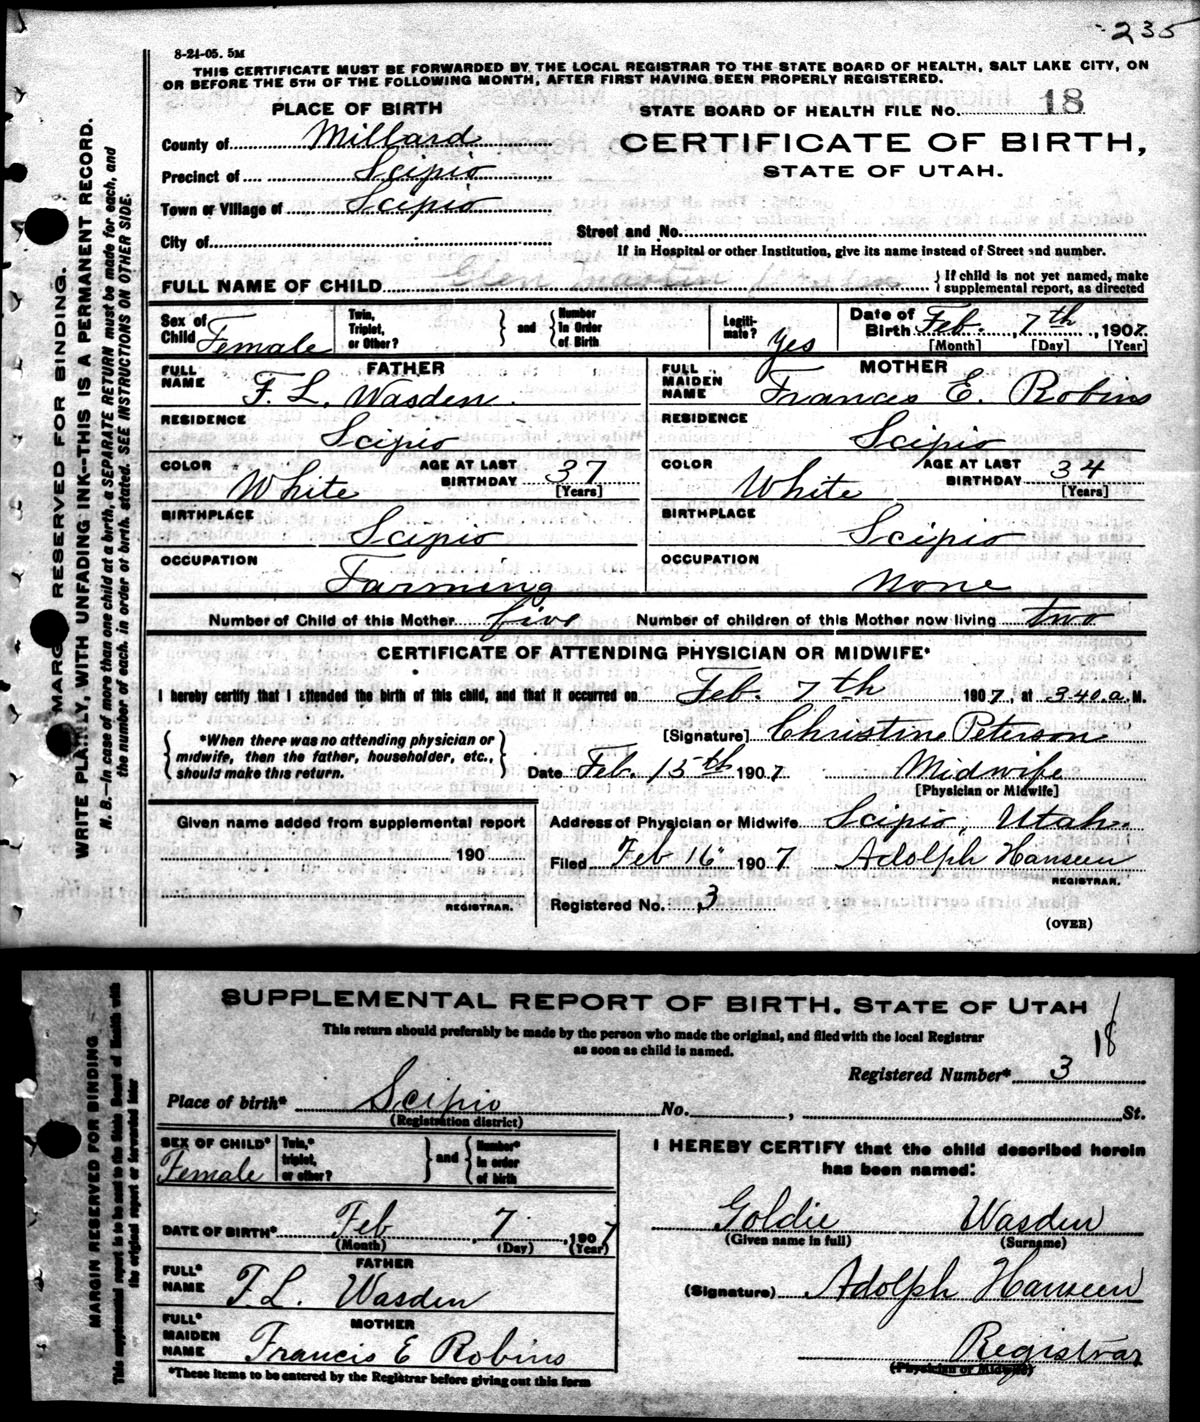 -235
8-24-05. 5M
THIS CERTIFICATE MUST BE FORWARDED BY THE LOCAL REGISTRAR TO THE STATE BOARD OF HEALTH, SALT LAKE CITY, ON
OR BEFORE THE 5TH OF THE FOLLOWING MONTH, AFTER FIRST HAVING BEEN PROPERLY REGISTERED.
PLACE OF BIRTH
STATE BOARD OF HEALTH FILE No. 18
County of Millard
CERTIFICATE OF BIRTH,
STATE OF UTAH.
Precinct of Scipio
Town or Village of Scipio
City of
Street and No.
If in Hospital or other Institution, give its name instead of Street and number.
FULL NAME OF CHILD Glen
} If child is not yet named, make
supplemental report, as directed
Sex of Child Female
Twin, Triplet, or Other? } and { Number in Order of Birth
Legitimate? Yes
Date of Birth Feb. 7th, 1907
[Month] [Day] [Year]
FATHER
FULL NAME F. L. Wasden.
MOTHER
FULL MAIDEN NAME Frances E. Robins
RESIDENCE Scipio
RESIDENCE Scipio
COLOR White AGE AT LAST BIRTHDAY 37 [Years]
COLOR White AGE AT LAST BIRTHDAY 34 [Years]
BIRTHPLACE Scipio
BIRTHPLACE Scipio
OCCUPATION Farming
OCCUPATION None
Number of Child of this Mother five Number of children of this Mother now living two
CERTIFICATE OF ATTENDING PHYSICIAN OR MIDWIFE*
I hereby certify that I attended the birth of this child, and that it occurred on Feb. 7th 1907, at 3.40 a. M.
{ *When there was no attending physician or
midwife, then the father, householder, etc.,
should make this return. }
[Signature] Christine Peterson
Date Feb. 15th 1907 Midwife
[Physician or Midwife]
Given name added from supplemental report
190
REGISTRAR.
Address of Physician or Midwife Scipio, Utah.
Filed Feb 16 1907 Adolph Hanseen
REGISTRAR.
Registered No. 3
(OVER)
MARGIN RESERVED FOR BINDING.
WRITE PLAINLY, WITH UNFADING INK--THIS IS A PERMANENT RECORD.
N. B.—In case of more than one child at a birth, a SEPARATE RETURN must be made for each, and
the number of each, in order of birth, stated. SEE INSTRUCTIONS ON OTHER SIDE.
SUPPLEMENTAL REPORT OF BIRTH. STATE OF UTAH
This return should preferably be made by the person who made the original, and filed with the local Registrar
as soon as child is named.
18
Registered Number* 3
Place of birth* Scipio No. , St.
(Registration district)
SEX OF CHILD* Female
Twin,* triplet, or other? } and { Number* in order of birth
I HEREBY CERTIFY that the child described herein
has been named:
DATE OF BIRTH* Feb 7, 1907
(Month) (Day) (Year)
Goldie Wasden
(Given name in full) (Surname)
FATHER
FULL* NAME F. L. Wasden
(Signature) Adolph Hanseen
MOTHER
FULL* MAIDEN NAME Francis E Robins
Registrar
(Physician or Midwife)
*These items to be entered by the Registrar before giving out this form
MARGIN RESERVED FOR BINDING
This supplemental report to be sent to the State Board of Health with
the original report or forwarded later